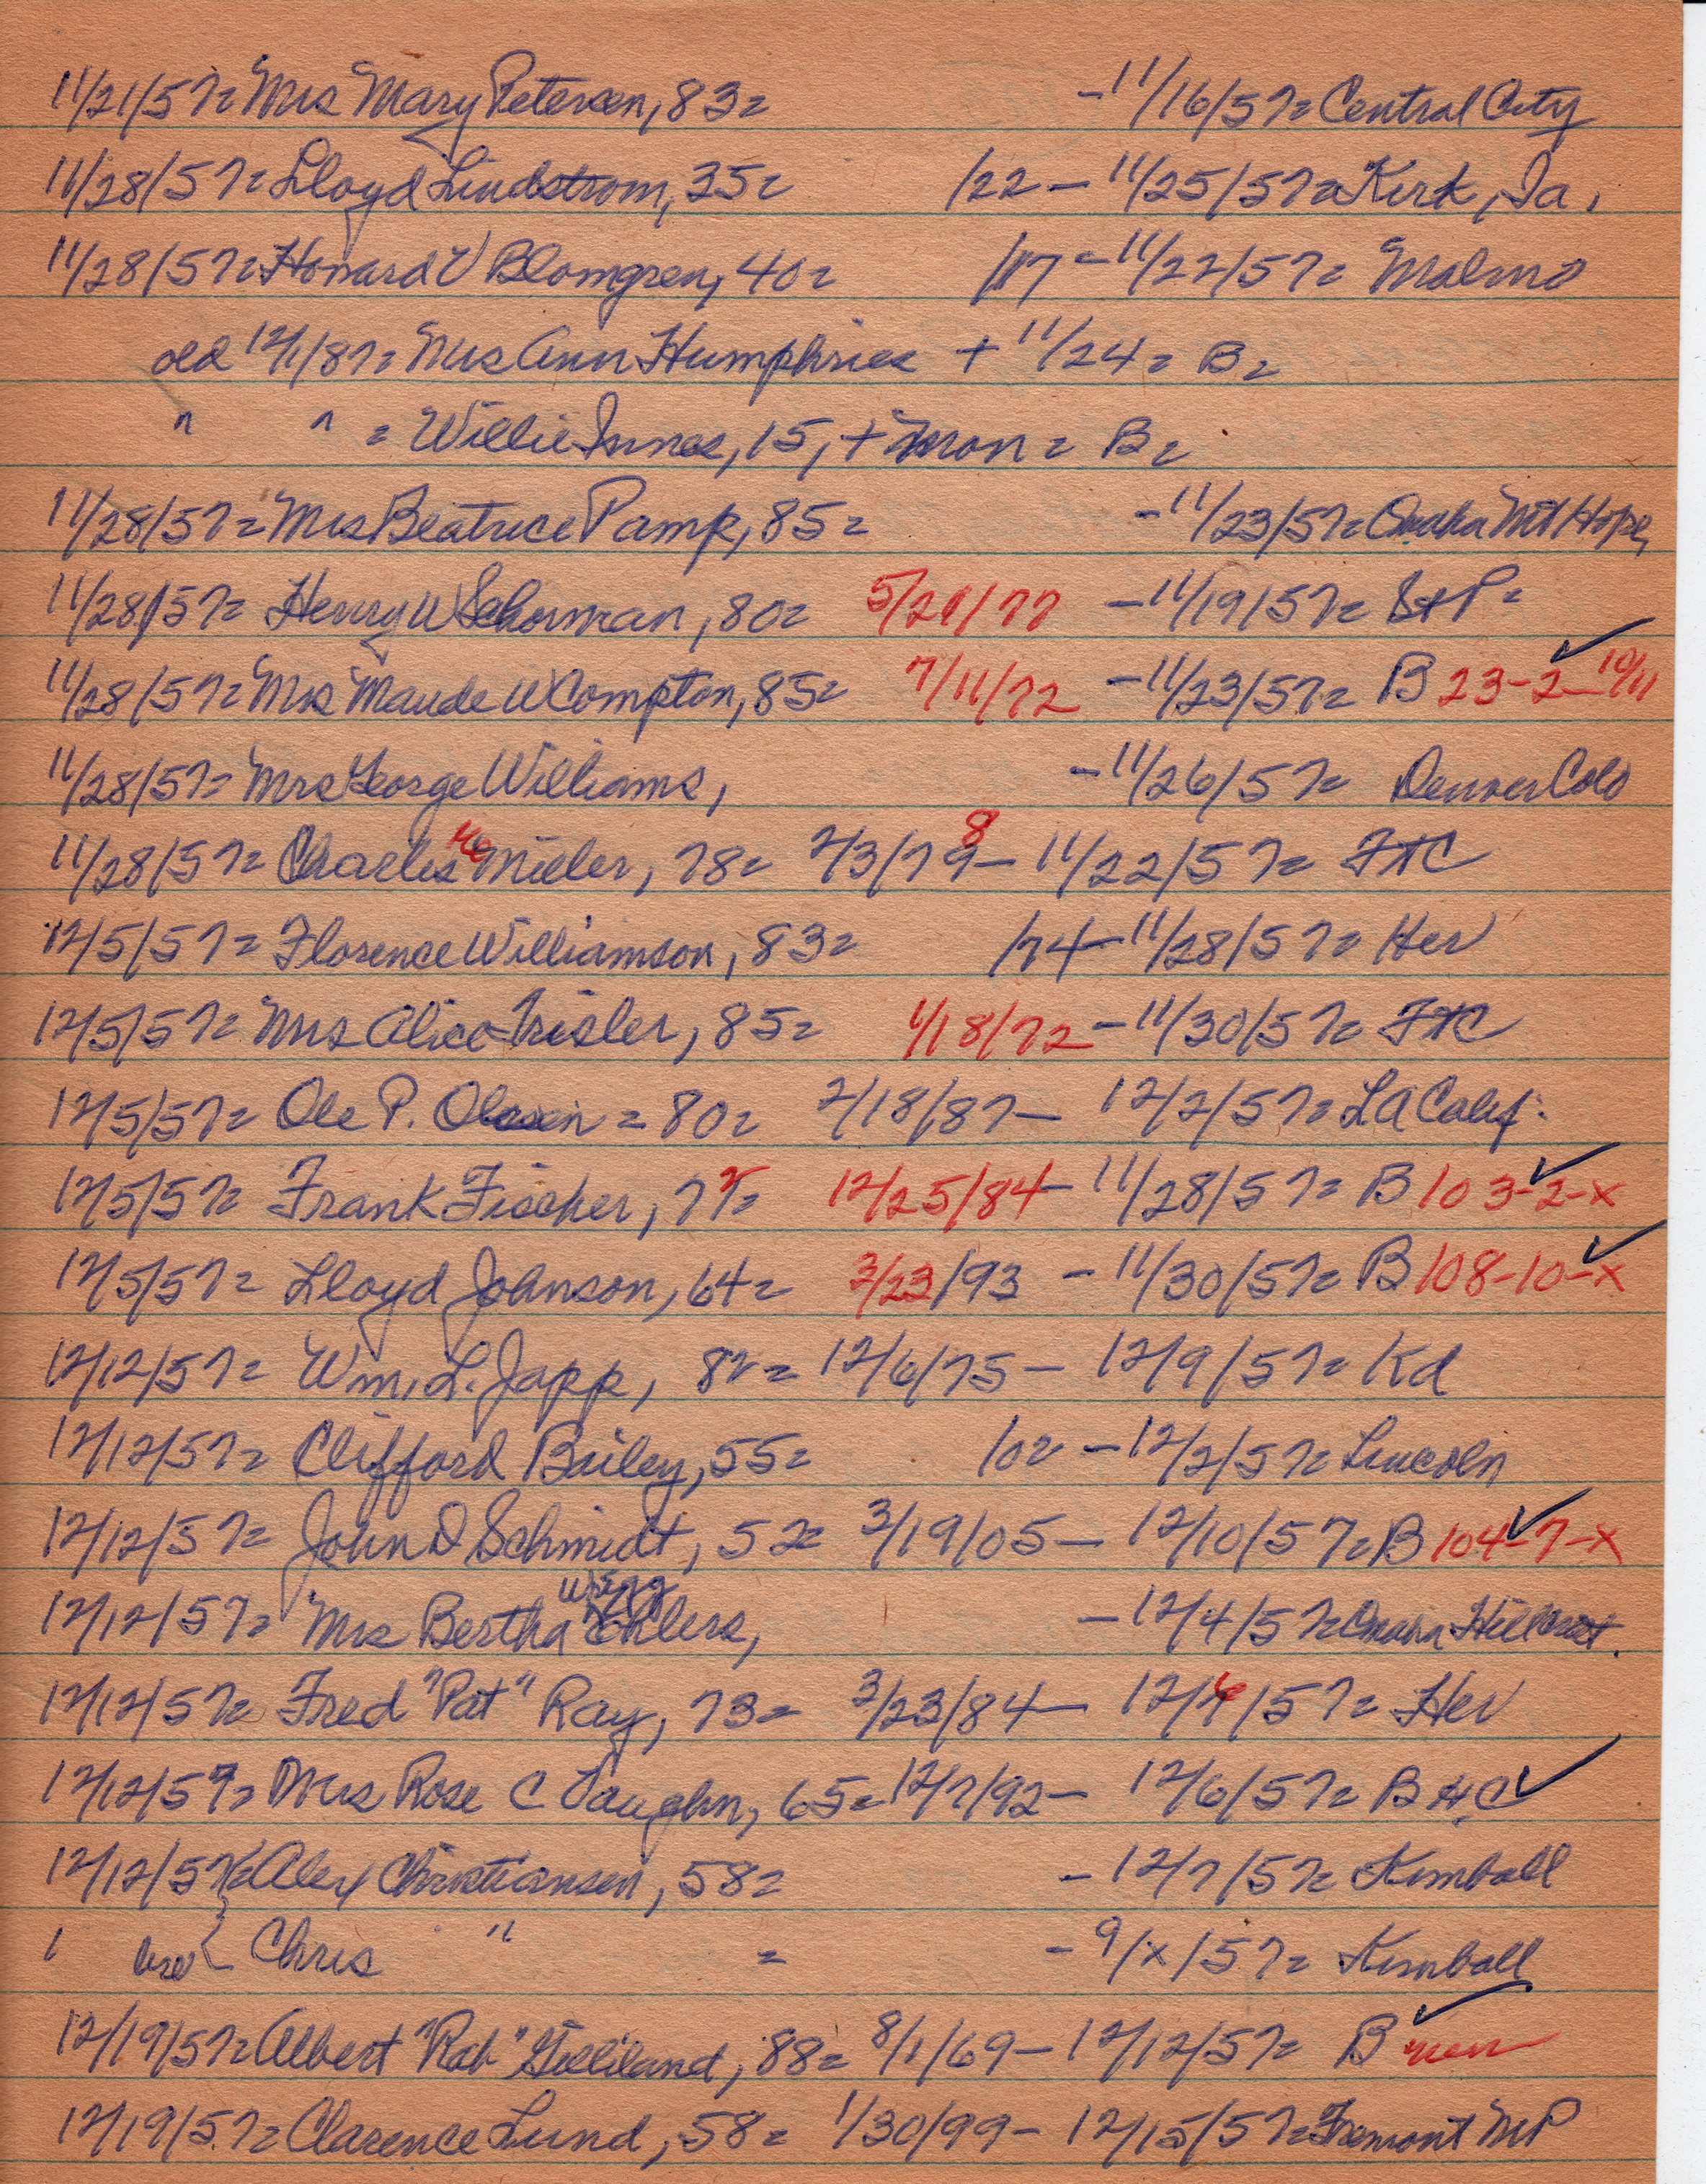 11/21/57= Mrs Mary Petersen, 83= -11/16/57= Central City
11/28/57= Lloyd Lindstrom, 35= /22- 11/25/57= Kirk, Ia.
11/28/57= Howard V Blomgren, 40= /17- 11/22/57= Malmo
old 12/1/87= Mrs Ann Humphries + 11/24= B=
" " = Willie Innes, 15, + Mon= B=
11/28/57= Mrs Beatrice Pamp, 85= -11/23/57= Omaha Mt Hope
11/28/57= Henry W Schorman, 80= 5/21/77 -11/19/57= B+P=
11/28/57= Mrs Maude W Compton, 85= 7/11/72 -11/23/57= B 23-2- 10/11 ✓
11/28/57= Mrs George Williams, -11/26/57= Denver Colo
11/28/57= Charles Mc Miller, 78= 2/3/79 8 - 11/22/57= FtC
12/5/57= Florence Williamson, 83= /74- 11/28/57= Her
12/5/57= Mrs Alice Trisler, 85= 1/18/72- 11/30/57= FtC
12/5/57= Ole P. Olesen= 80= 2/18/87- 12/2/57= LA Calif.
12/5/57= Frank Fischer, 72= 12/25/84- 11/28/57= B 103-2-x ✓
12/5/57= Lloyd Johnson, 64= 3/23/93 - 11/30/57= B 108-10-x ✓
12/12/57= Wm. L. Japp, 82= 12/6/75- 12/9/57= Kd
12/12/57= Clifford Bailey, 55= /02 - 12/2/57= Lincoln
12/12/57= John D Schmidt, 52= 3/19/05- 12/10/57= B 104-7-x ✓
12/12/57= Mrs Bertha Wrigg Ehlers, - 12/4/57= Omaha Hillcrest.
12/12/57= Fred "Pat" Ray, 73= 3/23/84- 12/6/57= Her
12/12/57= Mrs Rose C Vaughn, 65= 12/7/92- 12/6/57= B H.C ✓
12/12/57= { Alex Christiansen, 58= - 12/7/57= Kimball
bro { Chris " = - 9/x/57= Kimball
12/19/57= Albert "Rab" Gilliland, 88= 8/1/69- 12/12/57= B new ✓
12/19/57= Clarence Lund, 58= 1/30/99- 12/15/57= Fremont MP